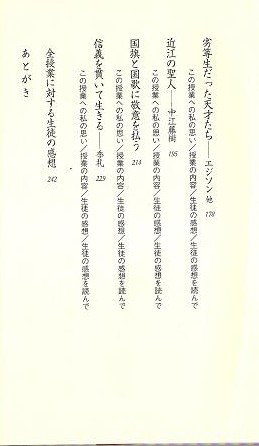 劣等生だった天才たち――エジソン 他 178
この授業への私の思い／授業の内容／生徒の感想／生徒の感想を読んで
近江の聖人――中江藤樹 195
この授業への私の思い／授業の内容／生徒の感想／生徒の感想を読んで
国旗と国歌に敬意を払う 214
この授業への私の思い／授業の内容／生徒の感想／生徒の感想を読んで
信義を貫いて生きる――季札 229
この授業への私の思い／授業の内容／生徒の感想／生徒の感想を読んで
全授業に対する生徒の感想 242
あとがき